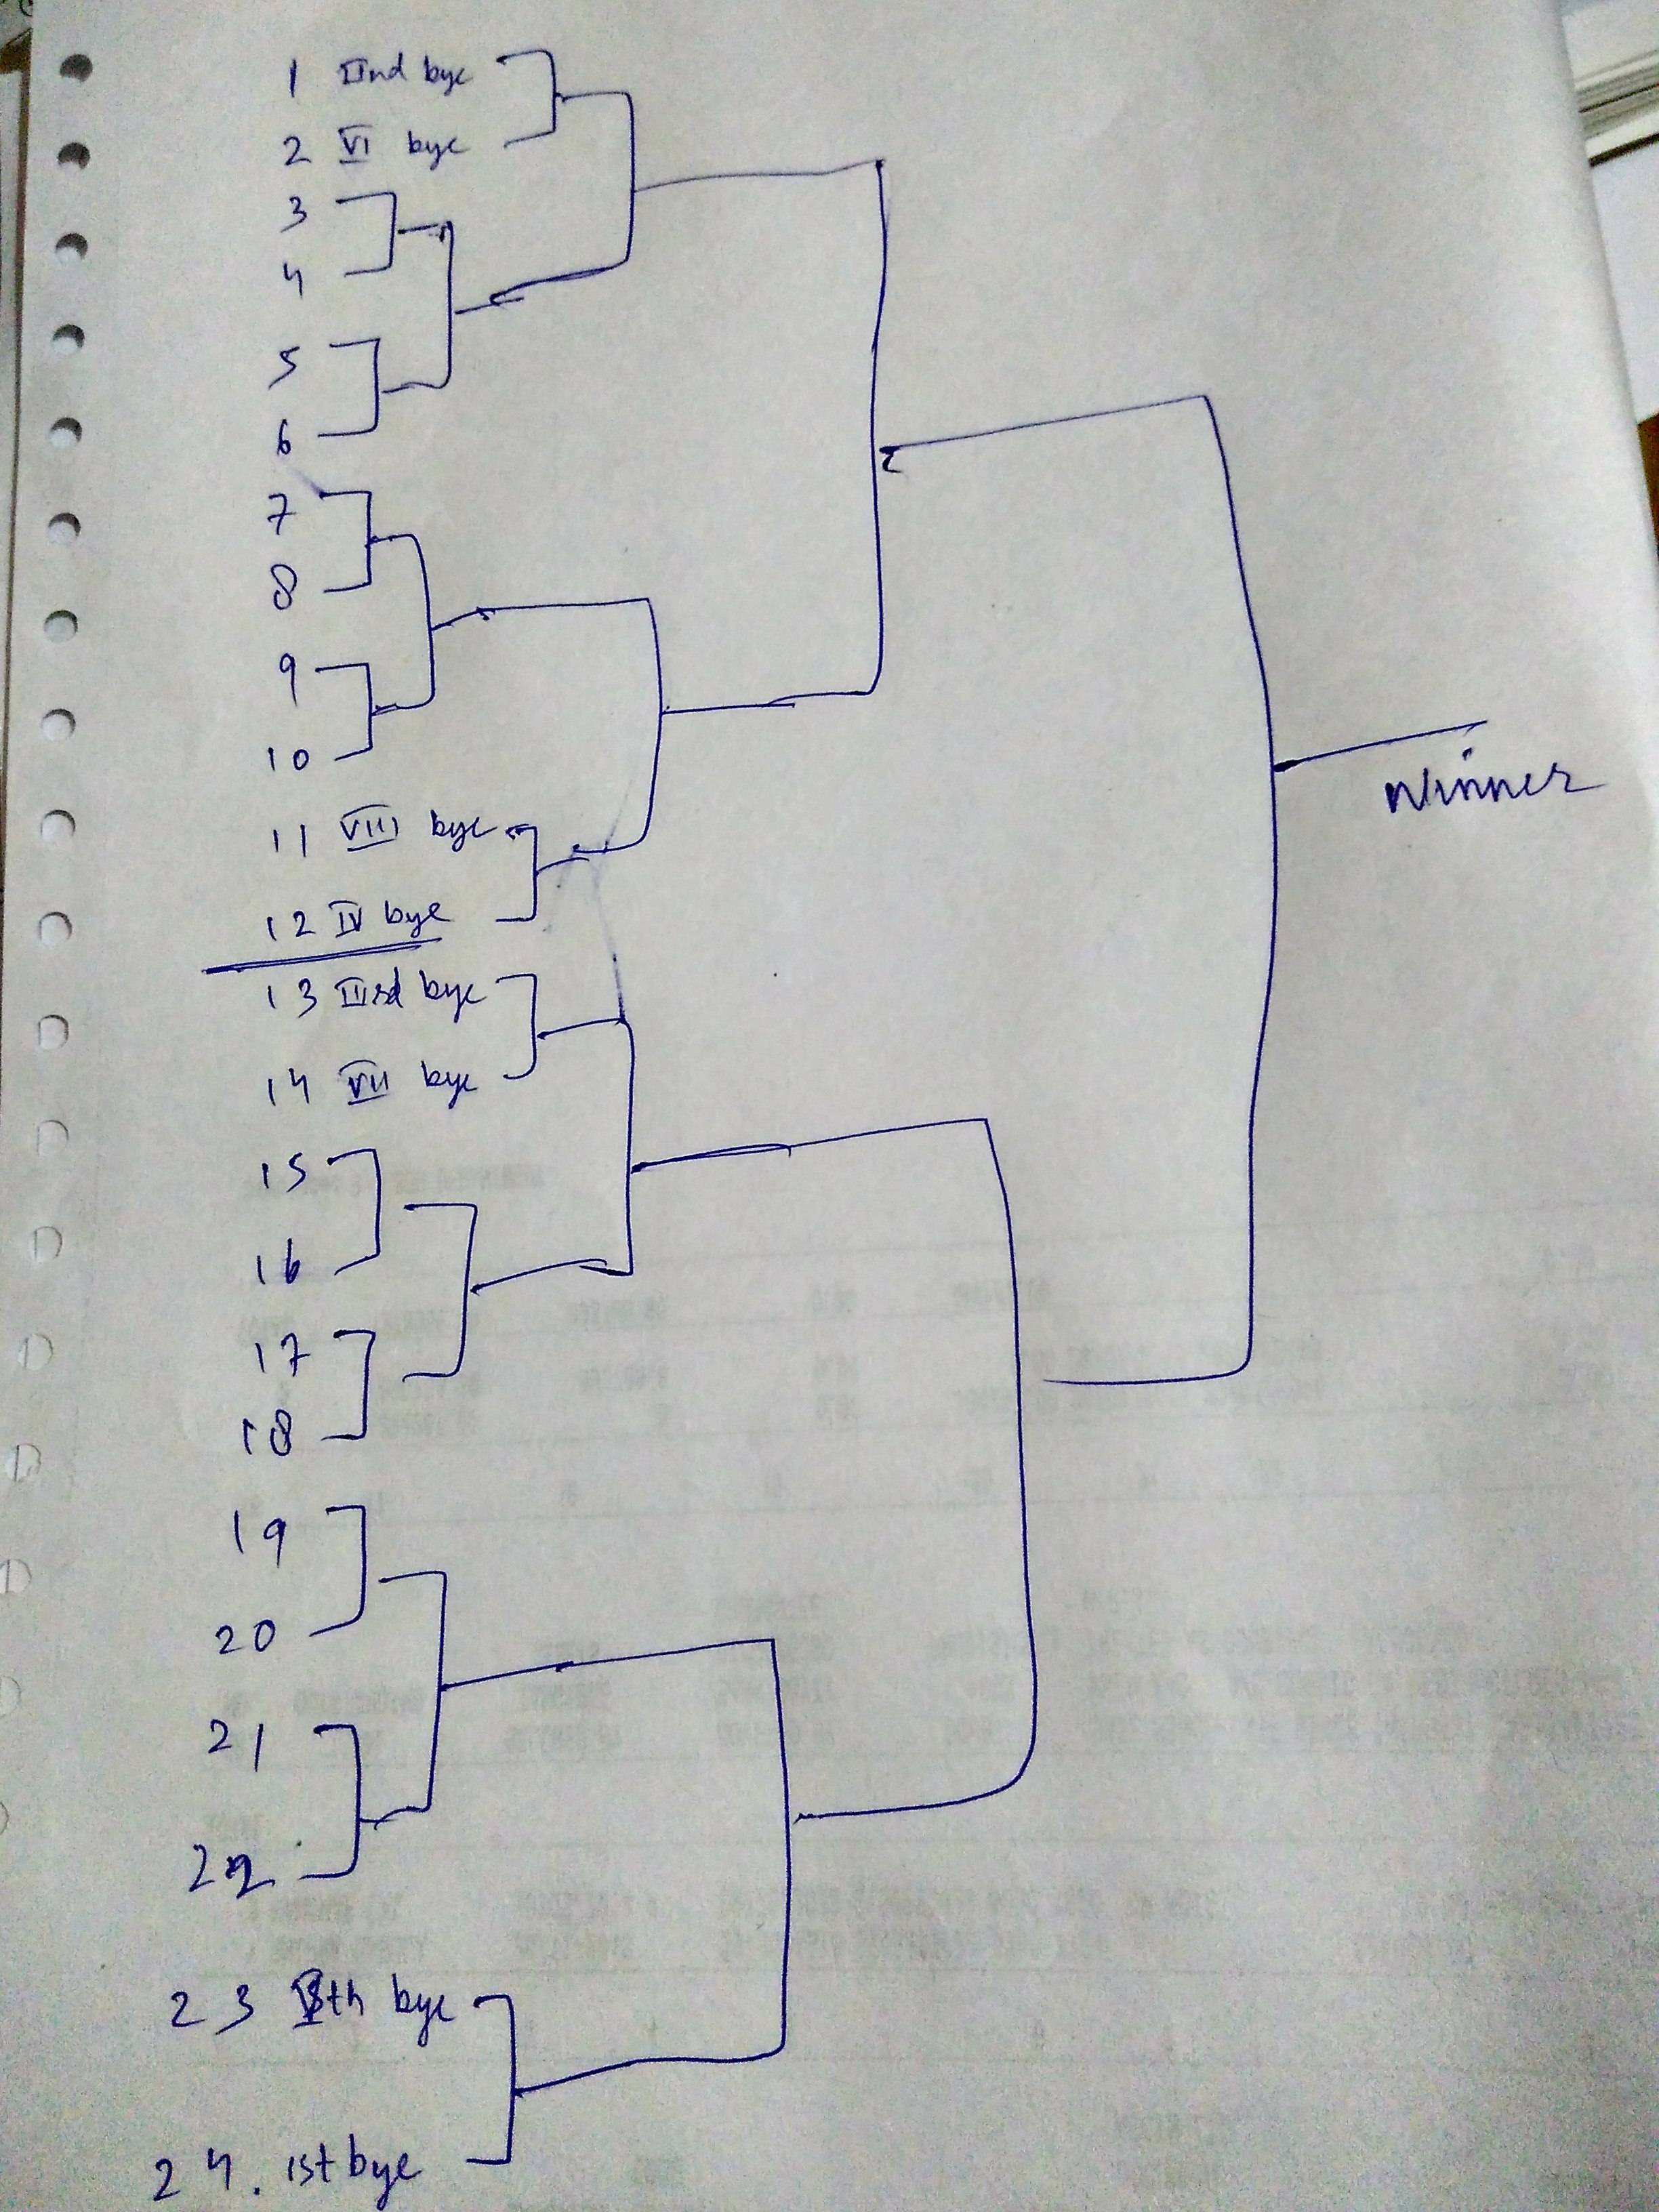 1 IInd bye
2 VI bye
3
4
5
6
7
8
9
10
11 VIII bye
12 IV bye
13 IIIrd bye
14 VII bye
15
16
17
18
19
20
21
22
23 Vth bye
24. 1st bye
Winner